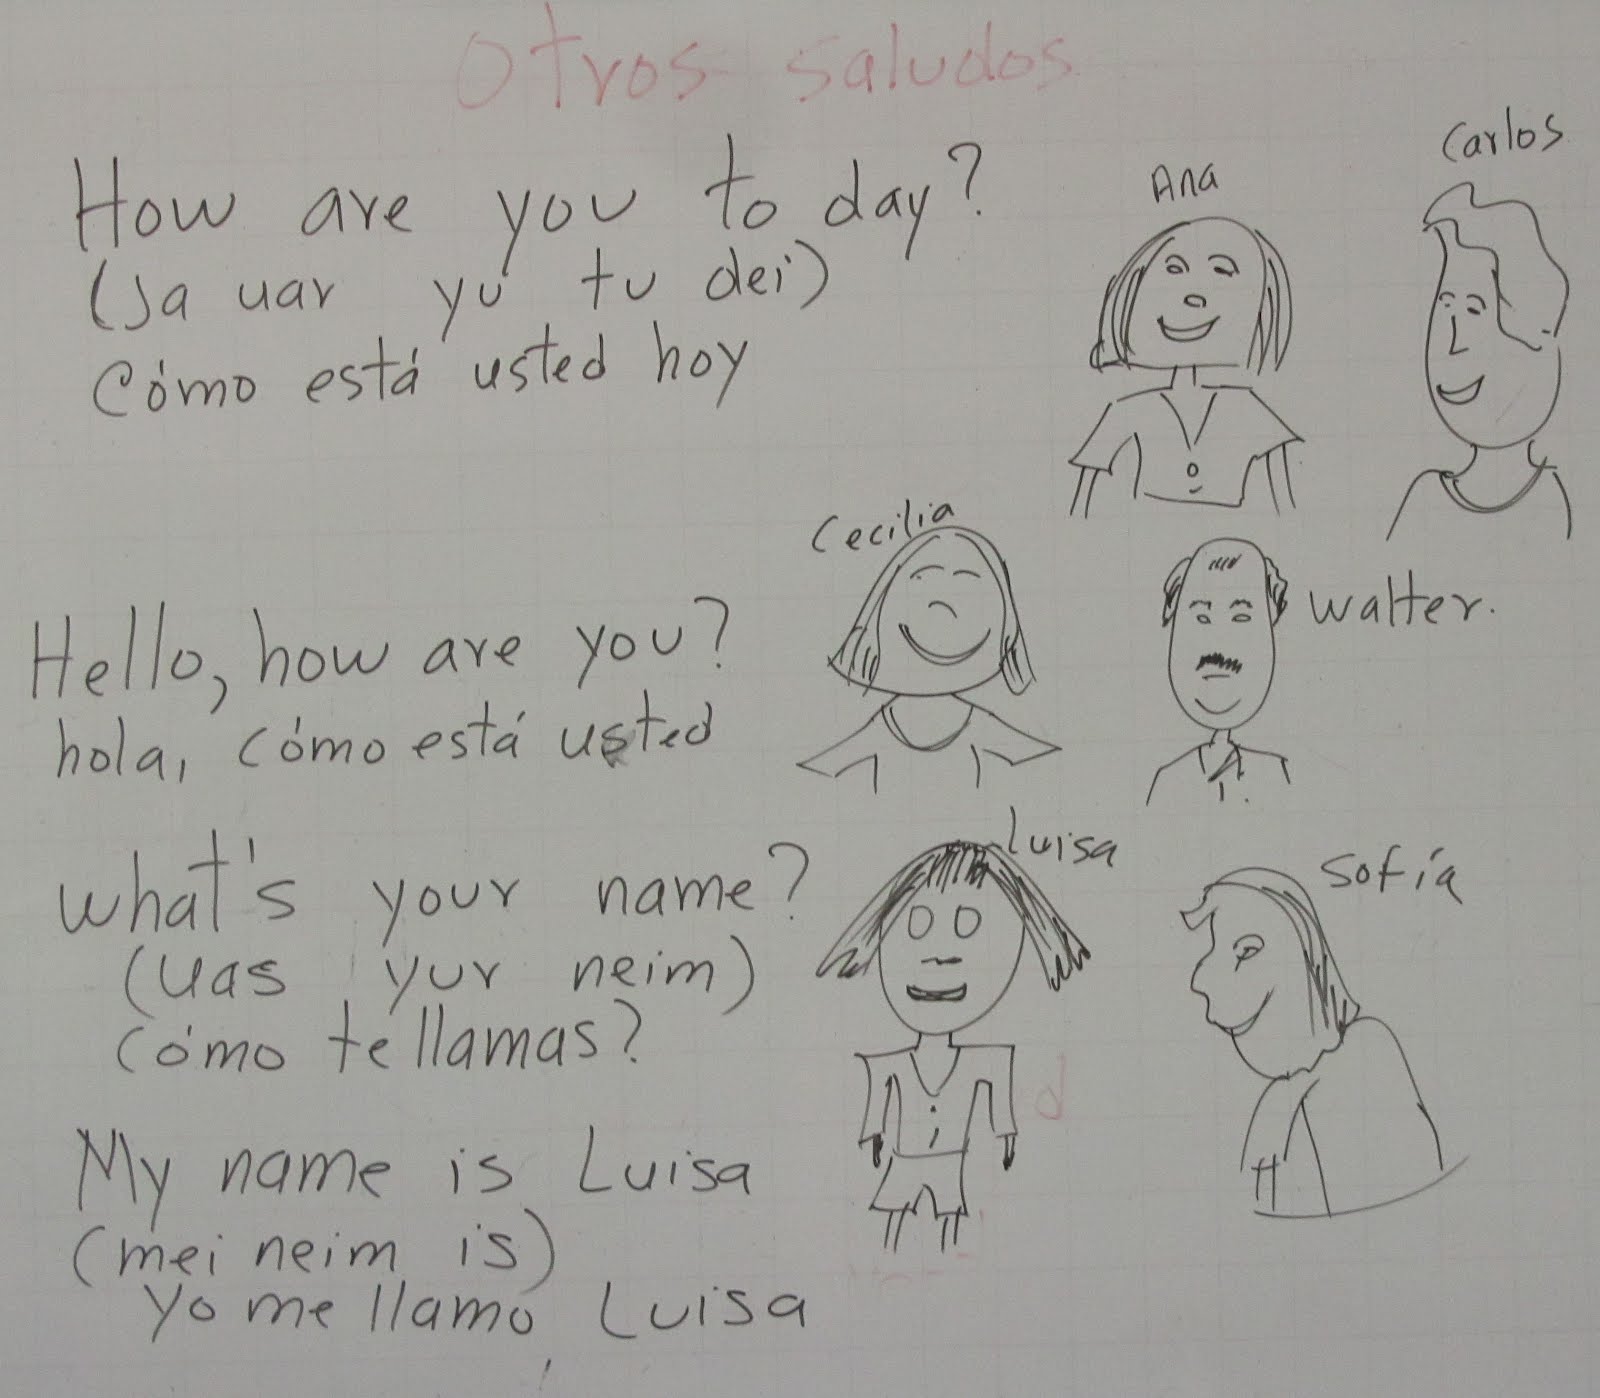 Otros saludos
How are you to day?
(Ja uar yu tu dei)
Cómo está usted hoy
Ana
Carlos
Cecilia
Walter.
Hello, how are you?
hola, cómo está usted
What's your name?
(uas yur neim)
Cómo te llamas?
Luisa
Sofía
d
My name is Luisa
(mei neim is)
Yo me llamo, Luisa